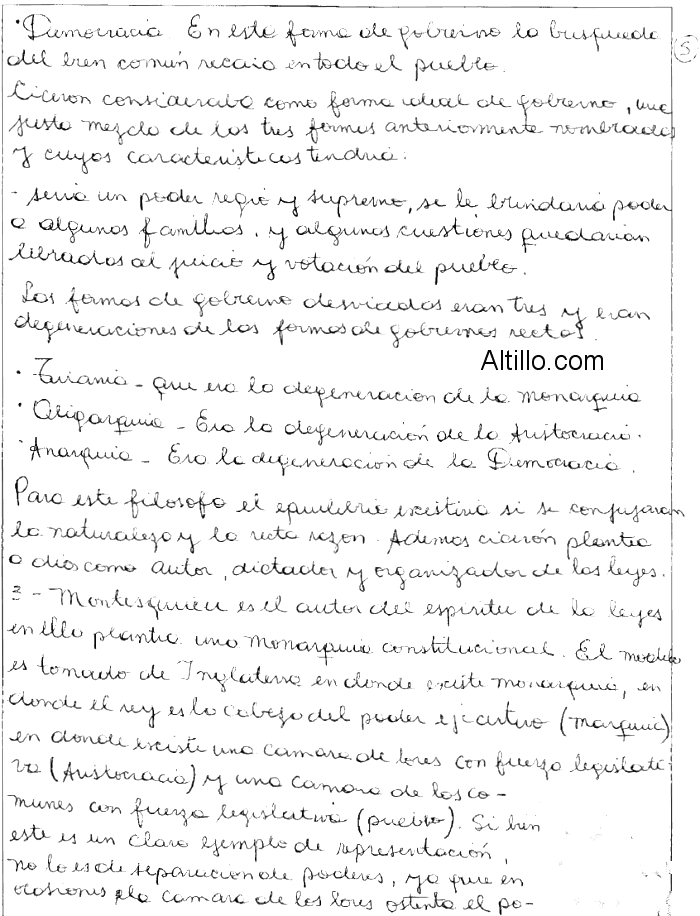 · Democracia En esta forma de gobierno la busqueda
5
del bien común recaia en todo el pueblo.
Ciceron consideraba como forma ideal de gobierno, una
justa mezcla de las tres formas anteriormente nombradas
y cuyas caracteristicas tendria:
- seria un poder regio y supremo, se le brindaria poder
a algunas familias, y algunas cuestiones quedarian
libradas al juicio y votación del pueblo.
Las formas de gobierno desviadas eran tres y eran
degeneraciones de las formas de gobiernos rectas.
Altillo.com
· Tirania - que era la degeneracion de la monarquia
· Oligarquia - Era la degeneración de la Aristocracia.
· Anarquia - Era la degeneración de la Democracia.
Para este filosofo el equilibrio existiria si se conjugaran
la naturaleza y la recta razon. Ademas cicerón plantea
a dios como autor, dictador y organizador de las leyes.
3 - Montesquieu es el autor del espiritu de la leyes
en ello plantea una monarquia constitucional. El modelo
es tomado de Inglaterra en donde existe monarquia, en
donde el rey es la cabeza del poder ejecutivo (marquia)
en donde existe una camara de lores con fuerza legislati-
va (Aristocracia) y una camara de los co-
munes con fuerza legislativa (pueblo). Si bien
este es un claro ejemplo de representación,
no lo es de separacion de poderes, ya que en
ocasiones la camara de los lores ostenta el po-